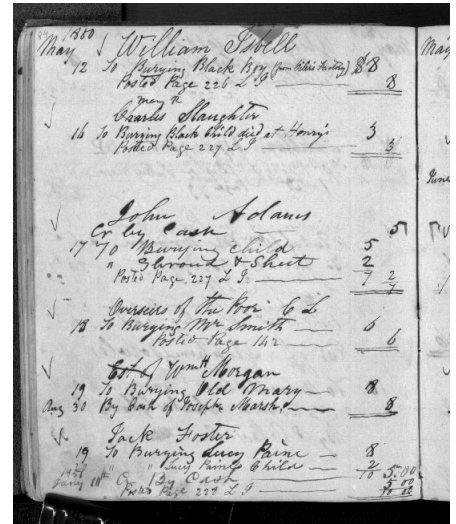 1850
May William Isbell
12 To Burying Black Boy (from Factory) $8
Posted Page 226 L I 8
Charles Slaughter
16 To Burying Black Child died at Henry's 3
Posted Page 227 L I 3
John Adams
Cr by Cash 5
17 To Burying Child 5
" Shroud & Sheet 2
Posted Page 227 L I 7 2
7
Overseers of the Poor C L
18 To Burying Mr Smith 6
Posted Page 142 6
Wm Morgan
19 To Burying Old Mary 8
Aug 30 By Cash of Joseph Marsh 8
Jack Foster
19 To Burying Lucy Paine 8
" Lucy Paine's Child 2
Jany 18th Cr By Cash 10 5.00
5 00
Posted Page 228 L I 10 00
May
June